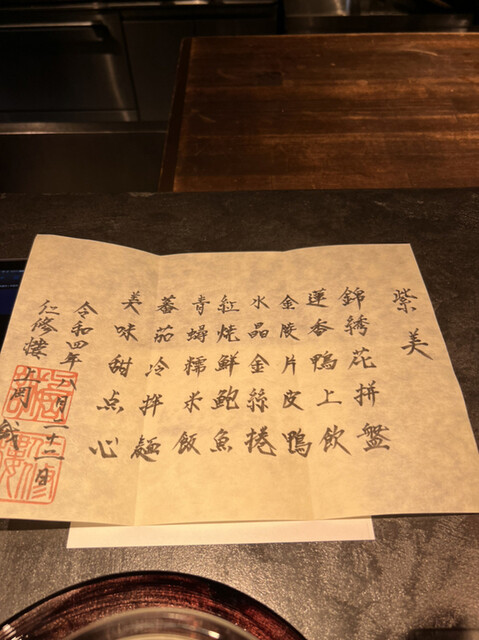 紫美
錦绣花拼盤
蓮香鴨上飲
金陵片皮鴨
水晶金絲捲
紅焼鮮鮑魚
青蟳糯米飯
蕃茄冷拌麺
美味甜点心
令和四年八月二十二日
仁修樓 上岡 誠